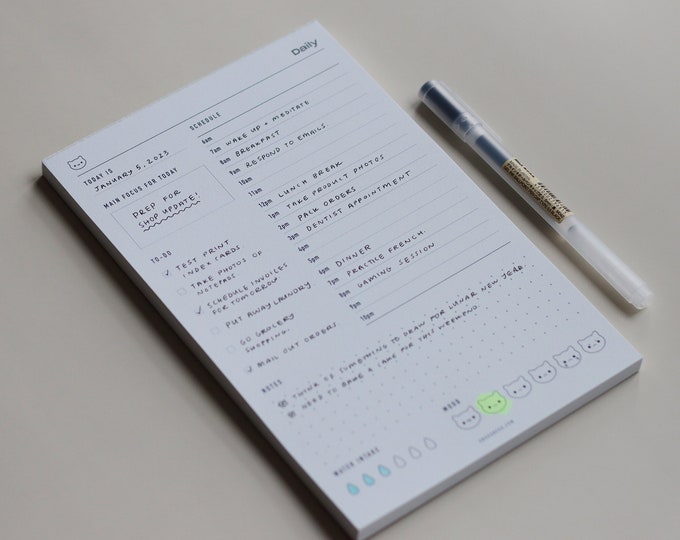 Daily
TODAY IS
JANUARY 5, 2023
MAIN FOCUS FOR TODAY
PREP FOR
SHOP UPDATE!
TO-DO
TEST PRINT
INDEX CARDS.
TAKE PHOTOS OF
NOTEPADS
SCHEDULE INVOICES
FOR TOMORROW
PUT AWAY LAUNDRY
GO GROCERY
SHOPPING.
MAIL OUT ORDERS
SCHEDULE
6am
7am WAKE UP + MEDITATE
8am BREAKFAST
9am RESPOND TO EMAILS
10am
11am
12pm LUNCH BREAK
1pm TAKE PRODUCT PHOTOS
2pm PACK ORDERS
3pm DENTIST APPOINTMENT
4pm
5pm
6pm DINNER
7pm PRACTICE FRENCH.
8pm GAMING SESSION
9pm
10pm
NOTES
THINK OF SOMETHING TO DRAW FOR LUNAR NEW YEAR
NEED TO BAKE A CAKE FOR THIS WEEKEND.
WATER INTAKE
MOOD